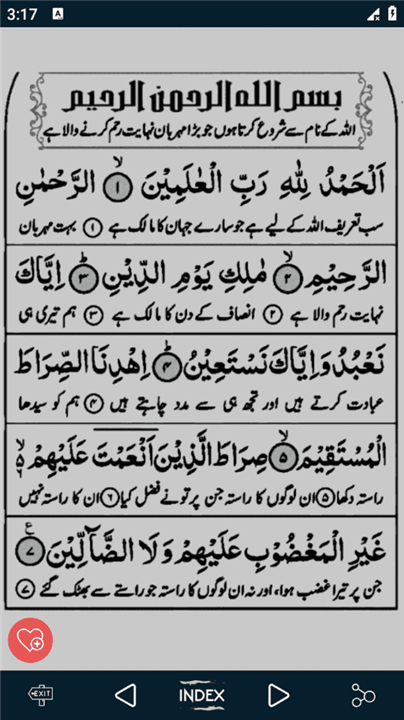 3:17 A
بسم الله الرحمن الرحيم
اللہ کے نام سے شروع کرتا ہوں جو بڑا مہربان نہایت رحم کرنے والا ہے
اَلْحَمْدُ لِلّٰهِ رَبِّ الْعٰلَمِيْنَ ۙ﴿۱﴾ الرَّحْمٰنِ
سب تعریف اللہ کے لیے ہے جو سارے جہان کا مالک ہے ﴿۱﴾ بہت مہربان
الرَّحِيْمِ ۙ﴿۲﴾ مٰلِكِ يَوْمِ الدِّيْنِ ؕ﴿۳﴾ اِيَّاكَ
نہایت رحم والا ہے ﴿۲﴾ انصاف کے دن کا مالک ہے ﴿۳﴾ ہم تیری ہی
نَعْبُدُ وَاِيَّاكَ نَسْتَعِيْنُ ؕ﴿۴﴾ اِهْدِنَا الصِّرَاطَ
عبادت کرتے ہیں اور تجھ ہی سے مدد چاہتے ہیں ﴿۴﴾ ہم کو سیدھا
الْمُسْتَقِيْمَ ۙ﴿۵﴾ صِرَاطَ الَّذِيْنَ اَنْعَمْتَ عَلَيْهِمْ ۙ۬
راستہ دکھا ﴿۵﴾ ان لوگوں کا راستہ جن پر تو نے فضل کیا ﴿۶﴾ ان کا راستہ نہیں
غَيْرِ الْمَغْضُوْبِ عَلَيْهِمْ وَلَا الضَّآلِّيْنَ ﴿۷﴾ ع
جن پر تیرا غضب ہوا، اور نہ ان لوگوں کا راستہ جو راستے سے بھٹک گئے ﴿۷﴾
EXIT INDEX